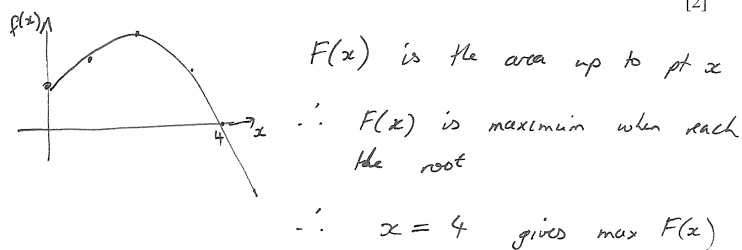 [2]
f(x)
F(x) is the area up to pt x
∴ F(x) is maximum when reach
the root
4
x
∴ x = 4 gives max F(x)